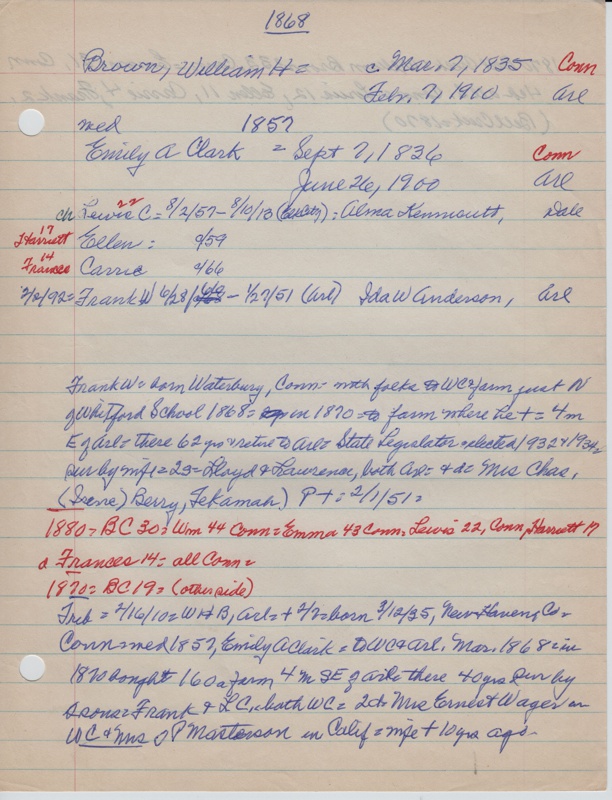 1868
Brown, William H = c. Mar. 7, 1835 Conn
Febr. 7, 1910 Arl
med 1857
Emily A Clark = Sept 7, 1836 Conn
June 26, 1900 Arl
22
ch Lewis C = 8/2/57 - 8/10/13 = Alma Kenmoutt, Dale
17
Harriett Ellen : c/59
14
Frances Carrie c/66
2/2/92 = Frank W 6/28/ - 1/27/51 (Arl) Ida W Anderson, Arl
Frank W = born Waterbury, Conn = with folks to WC = farm just N
of Whitford School 1868 = in 1870 = to farm where he + = 4 m
E of Arl = there 62 yrs & retire to Arl = State Legislator = elected 1932 & 1934 =
sur by wife = 2s = Lloyd & Lawrence, both Arl = & d = Mrs Chas.
(Irene) Berry, Tekamah) P + = 2/1/51 =
1880 = BC 30 = Wm 44 Conn = Emma 43 Conn = Lewis 22, Conn, Harriett 17
& Frances 14 = all Conn =
1870 = BC 19 = (other side)
Trib = 2/16/10 = W H B, Arl = + 2/7 = born 3/12/35, New Haven, Co =
Conn = med 1857, Emily A Clark = to WC & Arl. Mar. 1868 = in
1870 bought 160 a farm 4 m SE of Arl = there 40 yrs sur by
2 sons = Frank & L C, both WC = 2 d = Mrs Ernest Wager in
WC & Mrs J P Masterson in Calif = wife + 10 yrs ago =